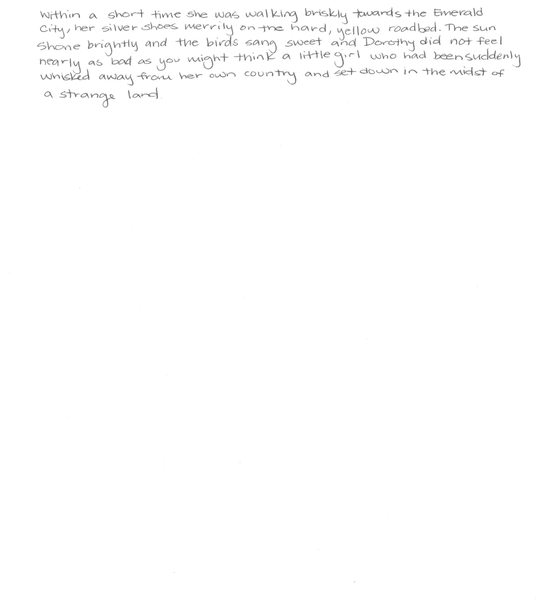 Within a short time she was walking briskly towards the Emerald
City, her silver shoes merrily on the hard, yellow roadbed. The sun
shone brightly and the birds sang sweet and Dorothy did not feel
nearly as bad as you might think a little girl who had been suddenly
whisked away from her own country and set down in the midst of
a strange land.